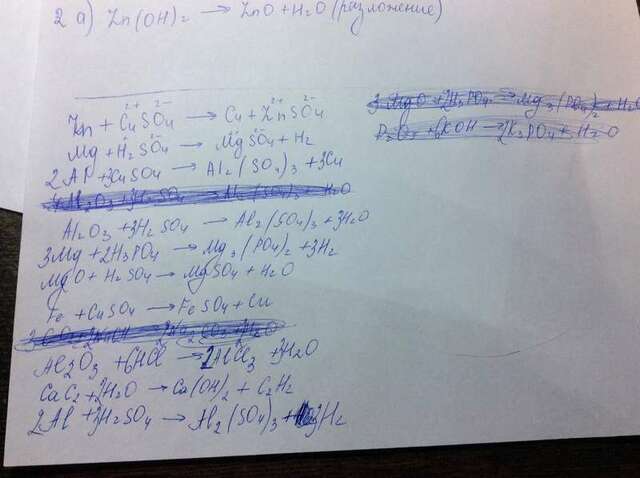 2 а) Zn(OH)₂ → ZnO + H₂O (разложение)
Zn + Cu²⁺SO₄²⁻ → Cu + Zn²⁺SO₄²⁻
Mg + H₂SO₄ → MgSO₄ + H₂
2Al + 3CuSO₄ → Al₂(SO₄)₃ + 3Cu
Al₂O₃ + 3H₂SO₄ → Al₂(SO₄)₃ + 3H₂O
3Mg + 2H₃PO₄ → Mg₃(PO₄)₂ + 3H₂
MgO + H₂SO₄ → MgSO₄ + H₂O
Fe + CuSO₄ → FeSO₄ + Cu
Al₂O₃ + 6HCl → 2AlCl₃ + 3H₂O
CaC₂ + 2H₂O → Ca(OH)₂ + C₂H₂
2Al + 3H₂SO₄ → Al₂(SO₄)₃ + 3H₂
3MgO + 2H₃PO₄ → Mg₃(PO₄)₂ + H₂O
P₂O₅ + 6KOH → 2K₃PO₄ + H₂O